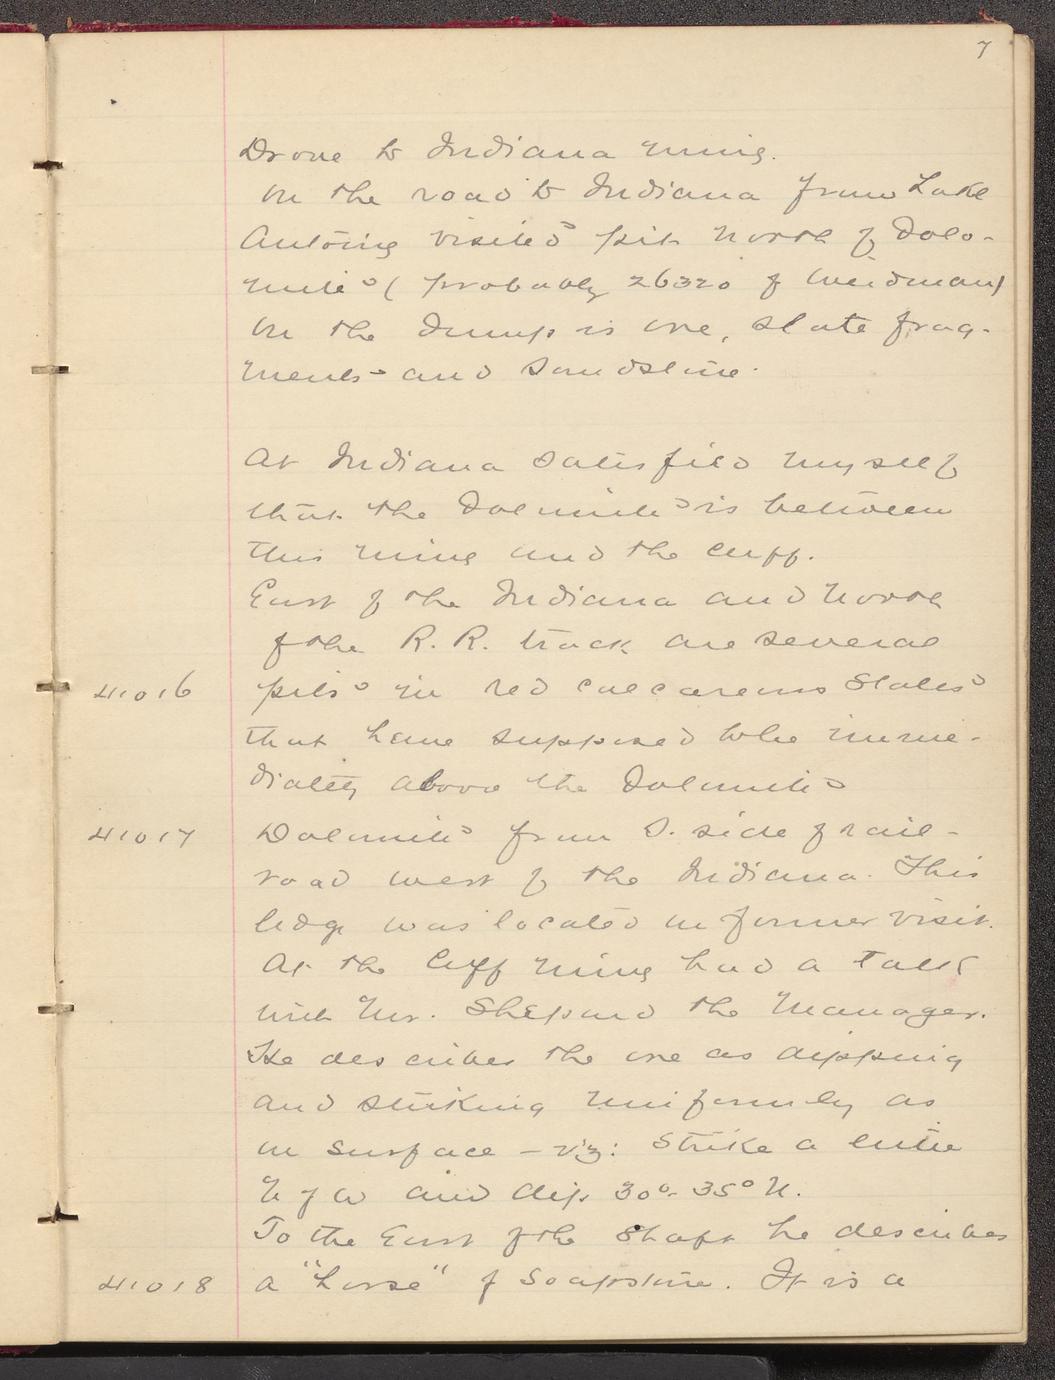 7
Drove to Indiana mine.
On the road to Indiana from Lake
Antoine visited pit north of Dolo-
mite (probably 26320 of Weidman)
On the dump is ore, slate frag-
ments and sandstone.
At Indiana satisfied myself
that the dolomite is between
this mine and the Cuff.
East of the Indiana and north
of the R. R. track are several
41016 pits in red calcareous slates
that have supposed to be imme-
diately above the dolomite
41017 Dolomite from S. side of rail-
road west of the Indiana. This
ledge was located in former visit.
At the Cuff mine had a talk
with Mr. Shepard the Manager.
He describes the ore as dipping
and striking uniformly as
on surface - viz: Strike a little
N of W and dip 30°-35° N.
To the East of the Shaft he describes
41018 a "horse" of soapstone. It is a